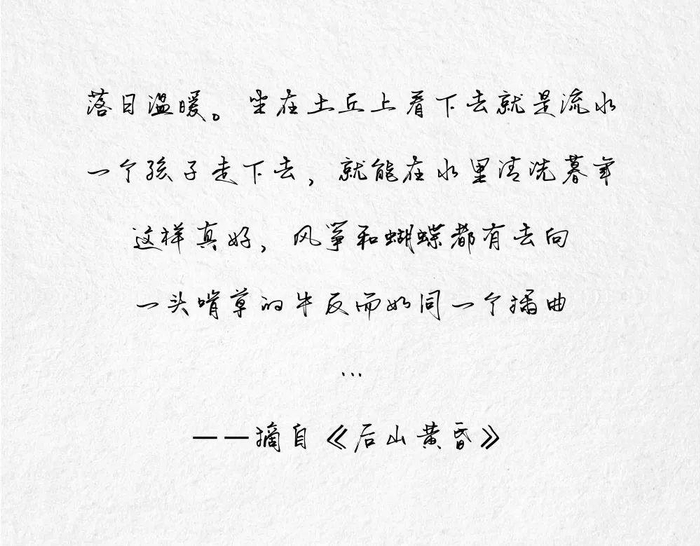 落日温暖。坐在土丘上看下去就是流水
一个孩子走下去，就能在水里清洗暮年
这样真好，风筝和蝴蝶都有去向
一头啃草的牛反而如同一个插曲
...
——摘自《后山黄昏》